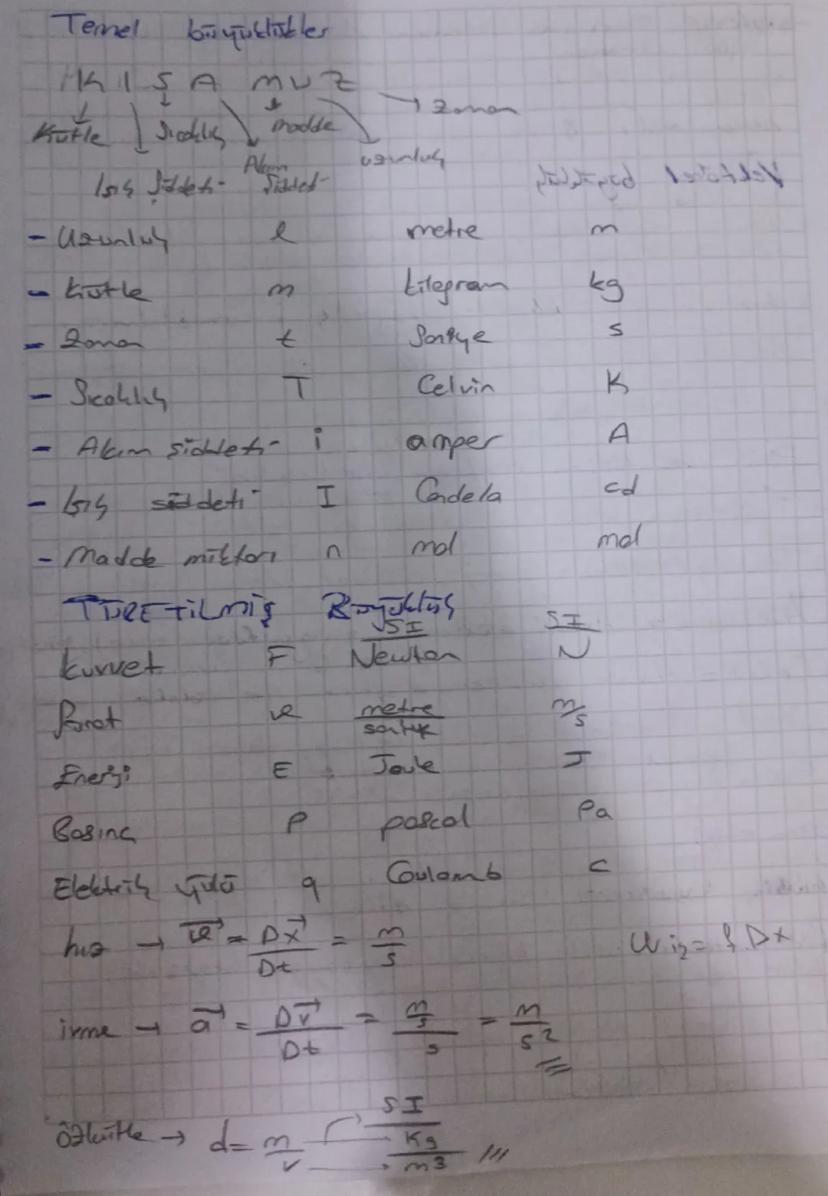 Temel büyüklükler
KISA MUZ
→ zaman
Kütle Sıcaklık madde
Işık Şiddeti Akım Şiddeti uzunluk
- Uzunluk l metre m
- kütle m kilogram kg
- zaman t Saniye s
- Sıcaklık T Celvin K
- Akım şiddeti i amper A
- Işık şiddeti I Candela cd
- Madde miktarı n mol mol
TÜRETİLMİŞ Büyüklük
SI SI
kuvvet F Newton N
Sürat v metre/saniye m/s
Enerji E Joule J
Basınç P pascal Pa
Elektrik yükü q Coulomb C
hız → v = Dx/Dt = m/s W = f Dx
ivme → a = Dv/Dt = m/s/s = m/s²
SI
Özkütle → d = m/v kg/m³